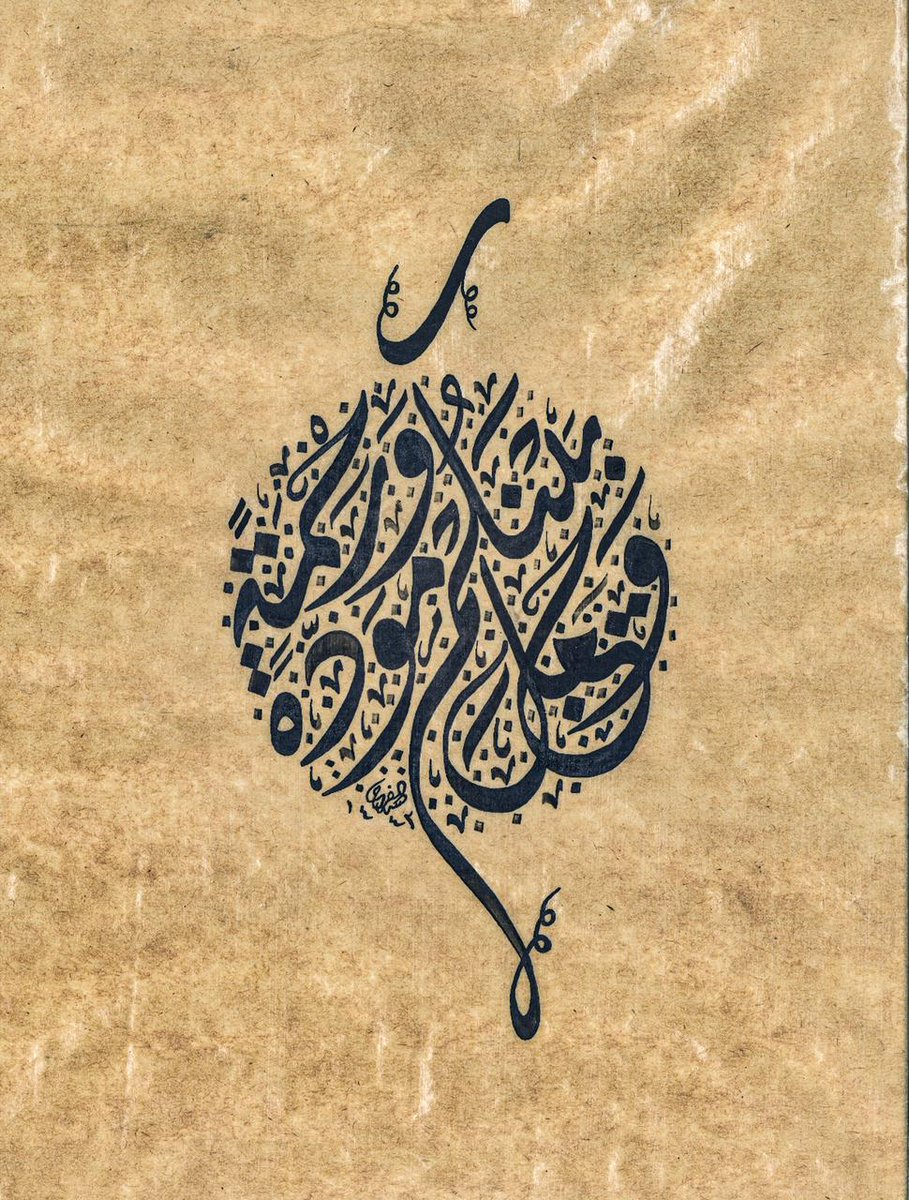 وجعل بينكم مودةً ورحمةً
١٤٤٢